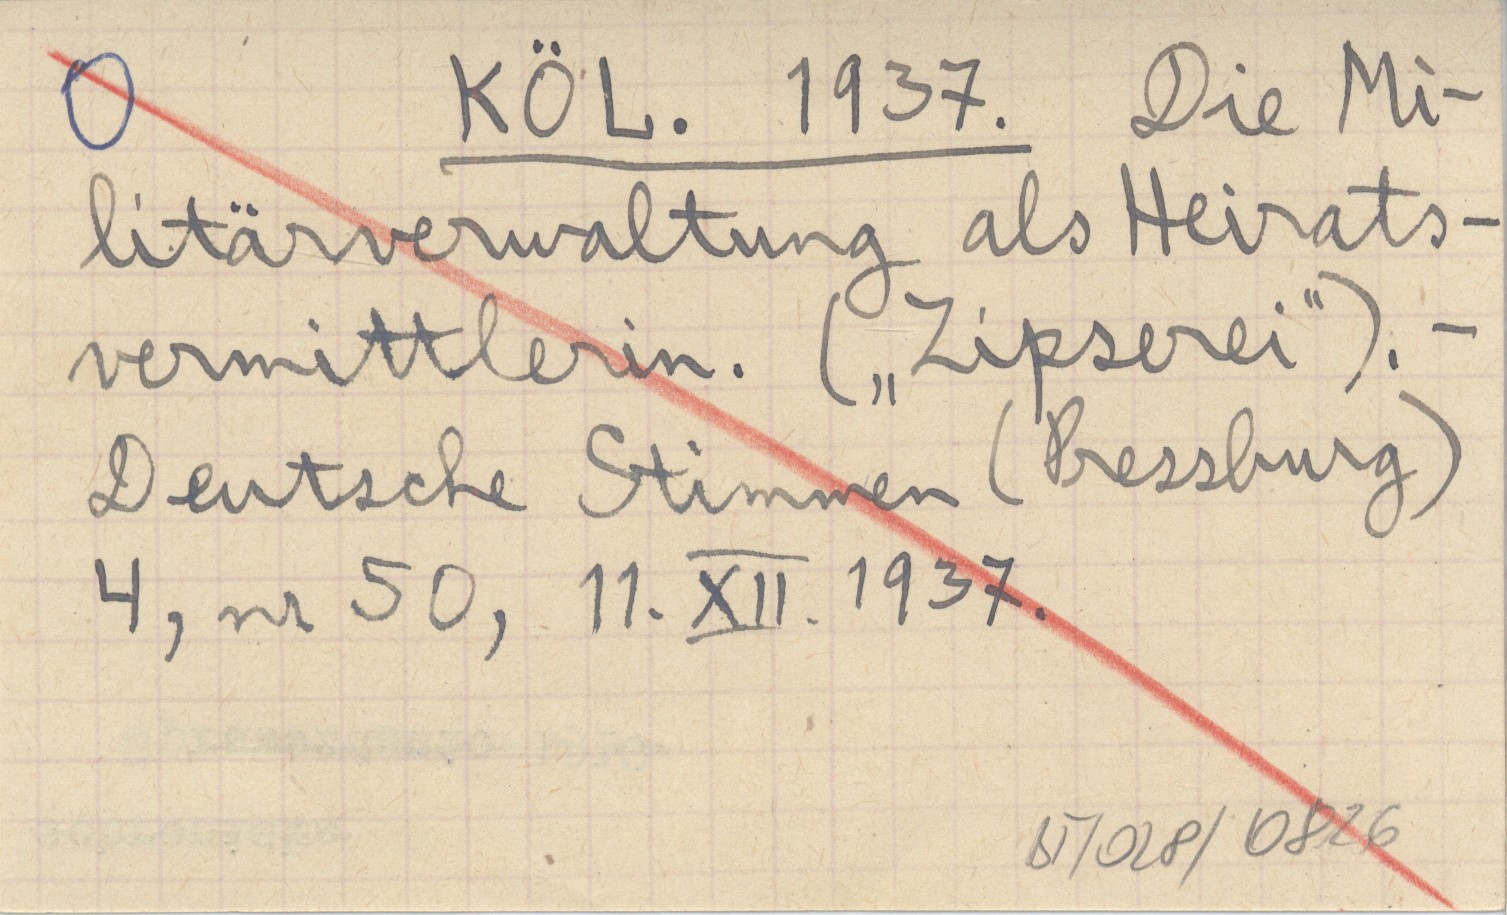 O KÖL. 1937. Die Mi-
litärverwaltung als Heirats-
vermittlerin. („Zipserei“). -
Deutsche Stimmen (Pressburg)
4, nr 50, 11. XII. 1937.
/028/ 0826